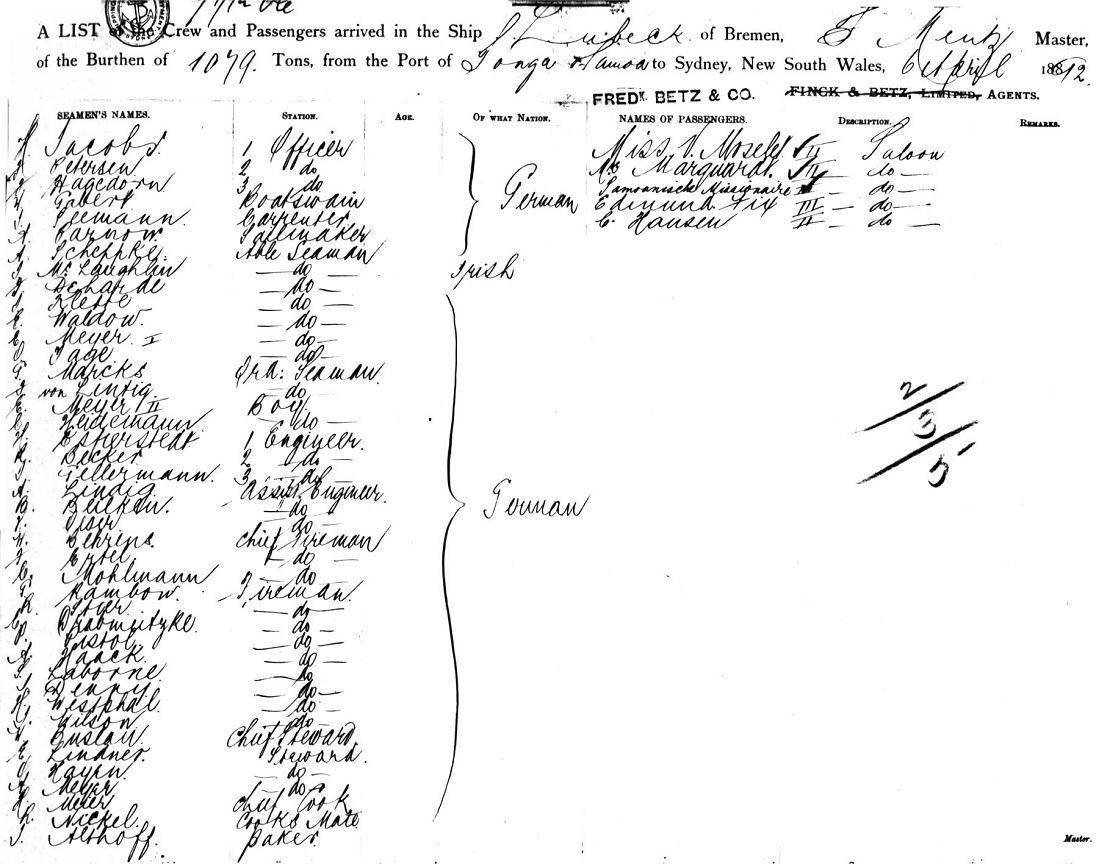 A LIST of the Crew and Passengers arrived in the Ship S. Lubeck of Bremen, Mentz Master,
of the Burthen of 1079. Tons, from the Port of Tonga & Samoa to Sydney, New South Wales, 6th April 1892.
FREDK. BETZ & CO. FINCK & BETZ, LIMITED, AGENTS.
SEAMEN'S NAMES. STATION. AGE. OF WHAT NATION. NAMES OF PASSENGERS. DESCRIPTION. REMARKS.
Jacobs 1 Officer Miss V. II Saloon
Petersen 2 do Marquardt. do
Hagedorn 3 do Samoanische Missionaire do
Gabert Boatswain German Edmund Fix III do
Seemann Carpenter C. Hansen II do
Barnow Sailmaker
Scheppke Able Seaman
McLaughlin do Irish
do
do
Waldow. do
Meyer I do
Tage do
Marcks Ord: Seaman.
von Lintig. do
Meyer II Boy
Heidemann do
1 Engineer.
Becker 2 do
Tellermann. 3 do
Lindig Assist. Engineer
do
do German
Behrens. Chief Fireman
Ertel do
Mohlmann do
Rambow. Fireman.
do
do
Pistol do
Haack. do
Laborne do
Denny do
Westphal. do
Wilson do
Chief Steward
Lindner. Steward.
do
Meyer do
Meier Chief Cook
Nickel. Cooks Mate
Althoff. Baker
2/3/5
Master.